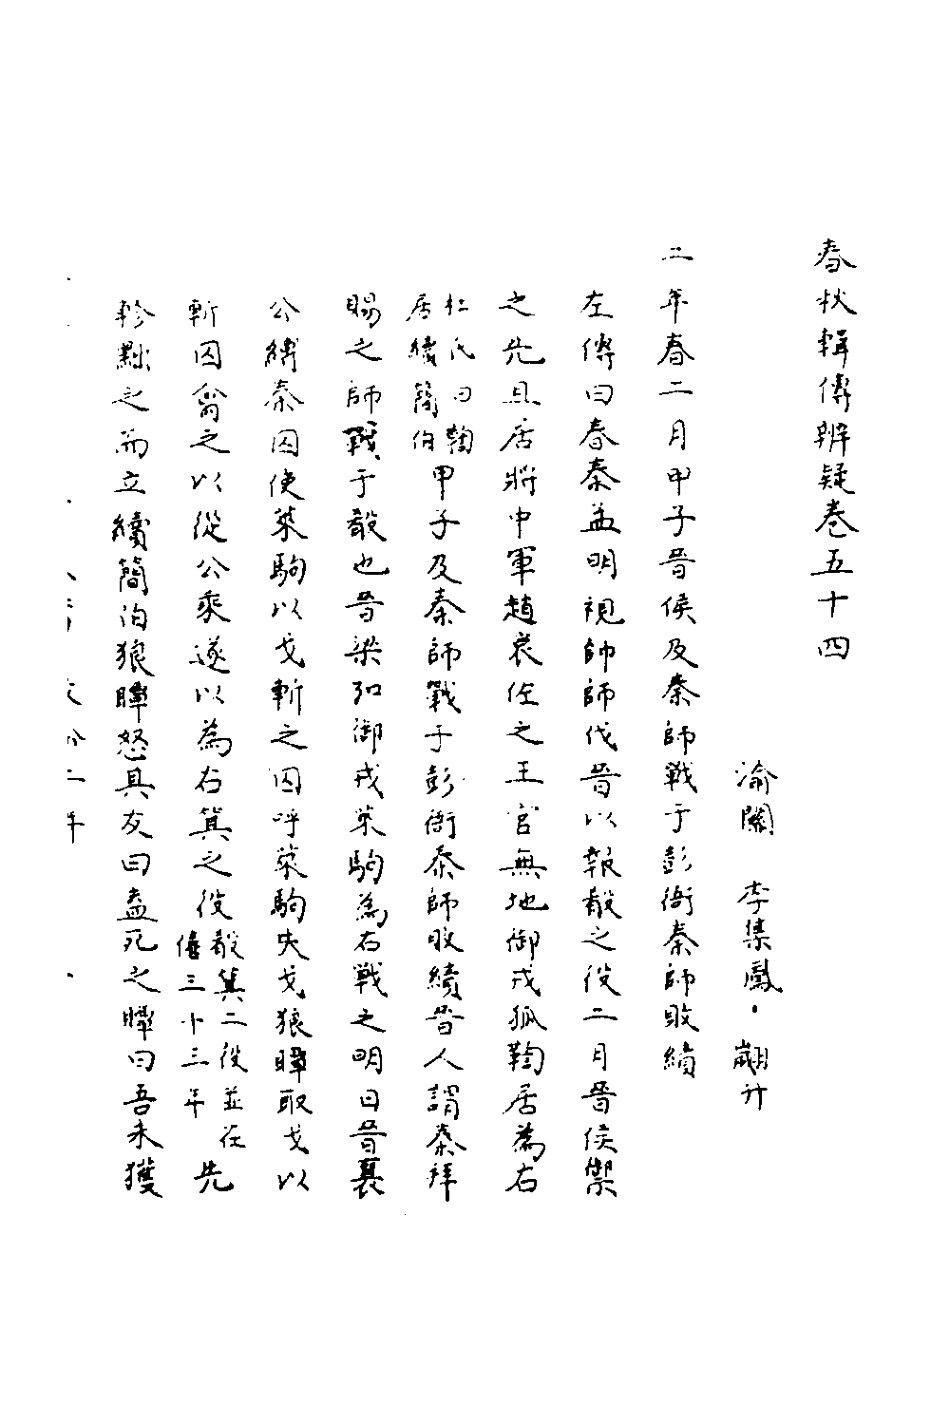 春秋輯傳辨疑卷五十四
渝關 李集鳳 翽升
二年春二月甲子晉侯及秦師戰于彭衙秦師敗績
左傳曰春秦孟明視帥師伐晉以報殽之役二月晉侯禦
之先且居將中軍趙衰佐之王官無地御戎狐鞫居為右
杜氏曰鞫
居續簡伯
甲子及秦師戰于彭衙秦師敗績晉人謂秦拜
賜之師戰于殽也晉梁弘御戎萊駒為右戰之明日晉襄
公縛秦囚使萊駒以戈斬之囚呼萊駒失戈狼瞫取戈以
斬囚禽之以從公乘遂以為右箕之役
殽箕二役並在
僖三十三年
先
軫黜之而立續簡伯狼瞫怒其友曰盍死之瞫曰吾未獲
文公二年